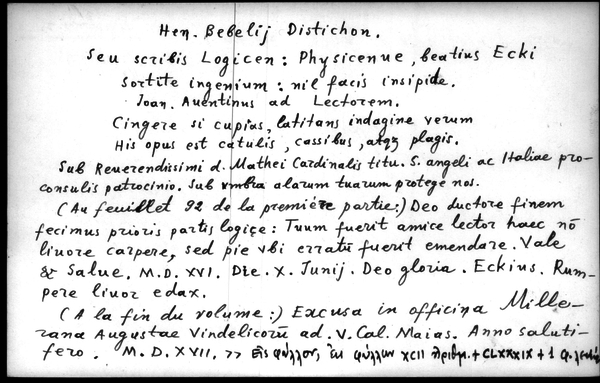 Hen. Bebelij Distichon.
Seu scribis Logicen: Physicenue, beatius Ecki
Sortite ingenium: nil facis insipide.
Ioan. Auentinus ad Lectorem.
Cingere si cupias, latitans indagine verum
His opus est catulis, cassibus, atqz plagis.
Sub Reuerendissimi d. Mathei Cardinalis titu. S. angeli ac Italiae pro-
consulis patrocinio. Sub vmbra alarum tuarum protege nos.
(Au feuillet 92 de la première partie:) Deo ductore finem
fecimus prioris partis logicę: Tuum fuerit amice lector haec nō
liuore carpere, sed pie vbi erratū fuerit emendare. Vale
& Salue. M.D.XVI. Die. X. Junij. Deo gloria. Eckius. Rum-
pere liuor edax.
(A la fin du volume:) Excusa in officina Mille-
rana Augustae Vindelicorū ad. V. Cal. Maias. Anno saluti-
fero. M.D.XVII. >> Εἰς φύλλον, ἐκ φύλλων XCII + CLXXXIX + 1